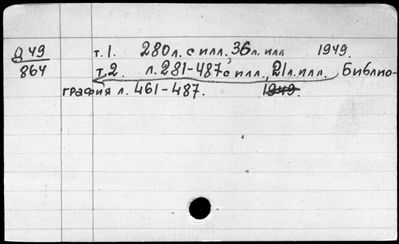 Д 49 т.1. 280 л. с илл, 36 л. илл 1949.
864 т.2. л. 281-487 с илл., 21 л. илл. Библио-
графия л. 461-487. 1949.